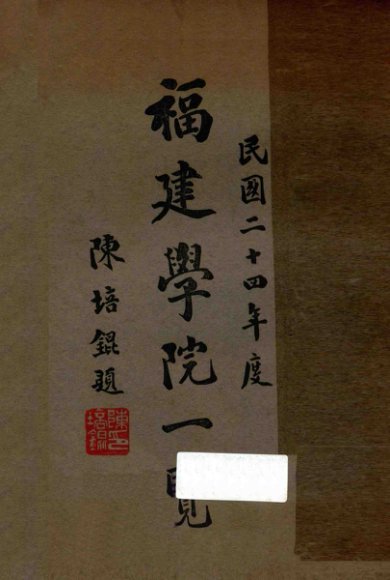 民國二十四年度
福建學院一覽
陳培錕題